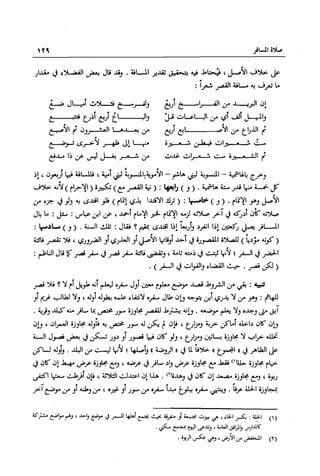 صلاة المسافر ١٢٩
على خلاف الأصل، فيُحتاط فيه بتحقيق تقدير المسافة. وقد قال بعض الفضلاء في مقدار
ما تعرف به مسافة القصر شعراً:
إن البريد من الفراسخ أربع ولفرسخ فثلاث أميال ضع
والميل ألف أي من الباعات قل والباع أربع أذرع فتتبع
ثم الذراع من الأصابع أربع من بعدها العشرون ثم الأصبع
ست شعيرات فبطن شعيرة منها إلى ظهر لأخرى توضع
ثم الشعيرة ست شعرات غدت من شعر بغل ليس عن ذا مدفع
وخرج بالهاشمية – المنسوبة لبني هاشم – الأموية المنسوبة لبني أمية، فالمسافة فيها أربعون، إذ
كل خمسة منها قدر ستة هاشمية. (و) رابعها: (نية القصر مع) تكبيرة (الإحرام) لأنه خلاف
الأصل وهو الإتمام. (و) خامسها: (ترك الاقتدا بذي إتمام) فلو اقتدى به ولو في جزء من
صلاته كأن أدركه في آخر صلاته لزمه الإتمام لخبر الإمام أحمد، عن ابن عباس: سئل: ما بال
المسافر يصلي ركعتين إذا انفرد وأربعاً إذا اقتدى بمقيم؟ فقال: تلك السنة. (و) سادسها:
(كونه مؤدياً) للصلاة المقصورة في أحد أوقاتها الأصلي أو العذري أو الضروري، فلا تقصر فائتة
الحضر في السفر؛ لأنها ثبتت في ذمته تامة، وتقضى فائتة سفر قصر في سفر قصر كما قال الناظم:
(لكن قصر. حيث القضاء والفوات في السفر).
تنبيه: بقي من الشروط قصد موضع معلوم معين أول سفره ليعلم أنه طويل أم لا؟ فلا قصر
للهائم: وهو من لا يدري أين يتوجه وإن طال سفره لانتفاء علمه بطوله أوله، ولا لطالب غريم أو
آبق متى وجده ولا يعلم موضعه. وإنه يشترط للقصر مجاوزة سور مختص بما سافر منه كبلد وقرية.
وإن كان داخله أماكن خربة ومزارع، فإن لم يكن له سور مختص به فأوله مجاوزة العمران، وإن
تخلله خراب لا مجاوزة بساتين ومزارع، ولو كان فيها قصور أو دور تسكن في بعض فصول السنة
على الظاهر في «المجموع» خلافاً لما في «الروضة» وأصلها؛ لأنها ليست من البلد. وأوله لساكن
خيام مجاوزة حلة(١) فقط مع مجاوزة عرض واد سافر في عرضه، ومع مجاوزة عرض مهبط إن كان في
ربوة، ومع مجاوزة مصعد إن كان في وهدة(٢). هذا إن اعتدلت الثلاثة، فإن أفرطت سعتها اكتفى
بمجاوزة الحلة عرفاً. وينتهي سفره ببلوغ مبدأ سفره من سور أو غيره، من وطنه أو من موضع آخر
(١) الحلة: بكسر الحاء، هي بيوت مجتمعة أو متفرقة بحيث يجتمع أهلها للسمر في موضع واحد، ولهم مواضع مشتركة
كالمدارس والمرافق العامة، وتدعى اليوم بمجمع سكني.
(٢) المنخفض من الأرض، وهي عكس الربوة.